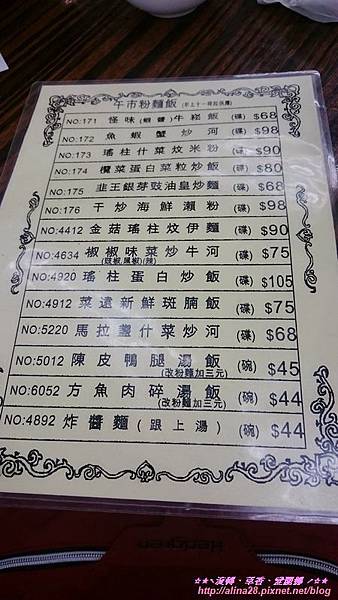 午市粉麵飯 (早上十一時起供應)
NO:171 怪味(蝦醬)牛崧飯 (碟) $68
NO:172 魚蝦蟹炒河 (碟) $98
NO:173 瑤柱什菜炆米粉 (碟) $90
NO:174 欖菜蛋白菜粒炒飯 (碟) $80
NO:175 韭王銀芽豉油皇炒麵 (碟) $68
NO:176 干炒海鮮瀨粉 (碟) $98
NO:4412 金菇瑤柱炆伊麵 (碟) $90
NO:4634 椒椒味菜炒牛河 (碟) $75
NO:4920 瑤柱蛋白炒飯 (碟) $105
NO:4912 菜遠新鮮斑腩飯 (碟) $75
NO:5220 馬拉盞什菜炒河 (碟) $68
NO:5012 陳皮鴨腿湯飯 (碗) $45
(改粉麵加三元)
NO:6052 方魚肉碎湯飯 (碗) $44
(改粉麵加三元)
NO:4892 炸醬麵(跟上湯) (碗) $44
Hedgren
http://alina28.pixnet.net/blog